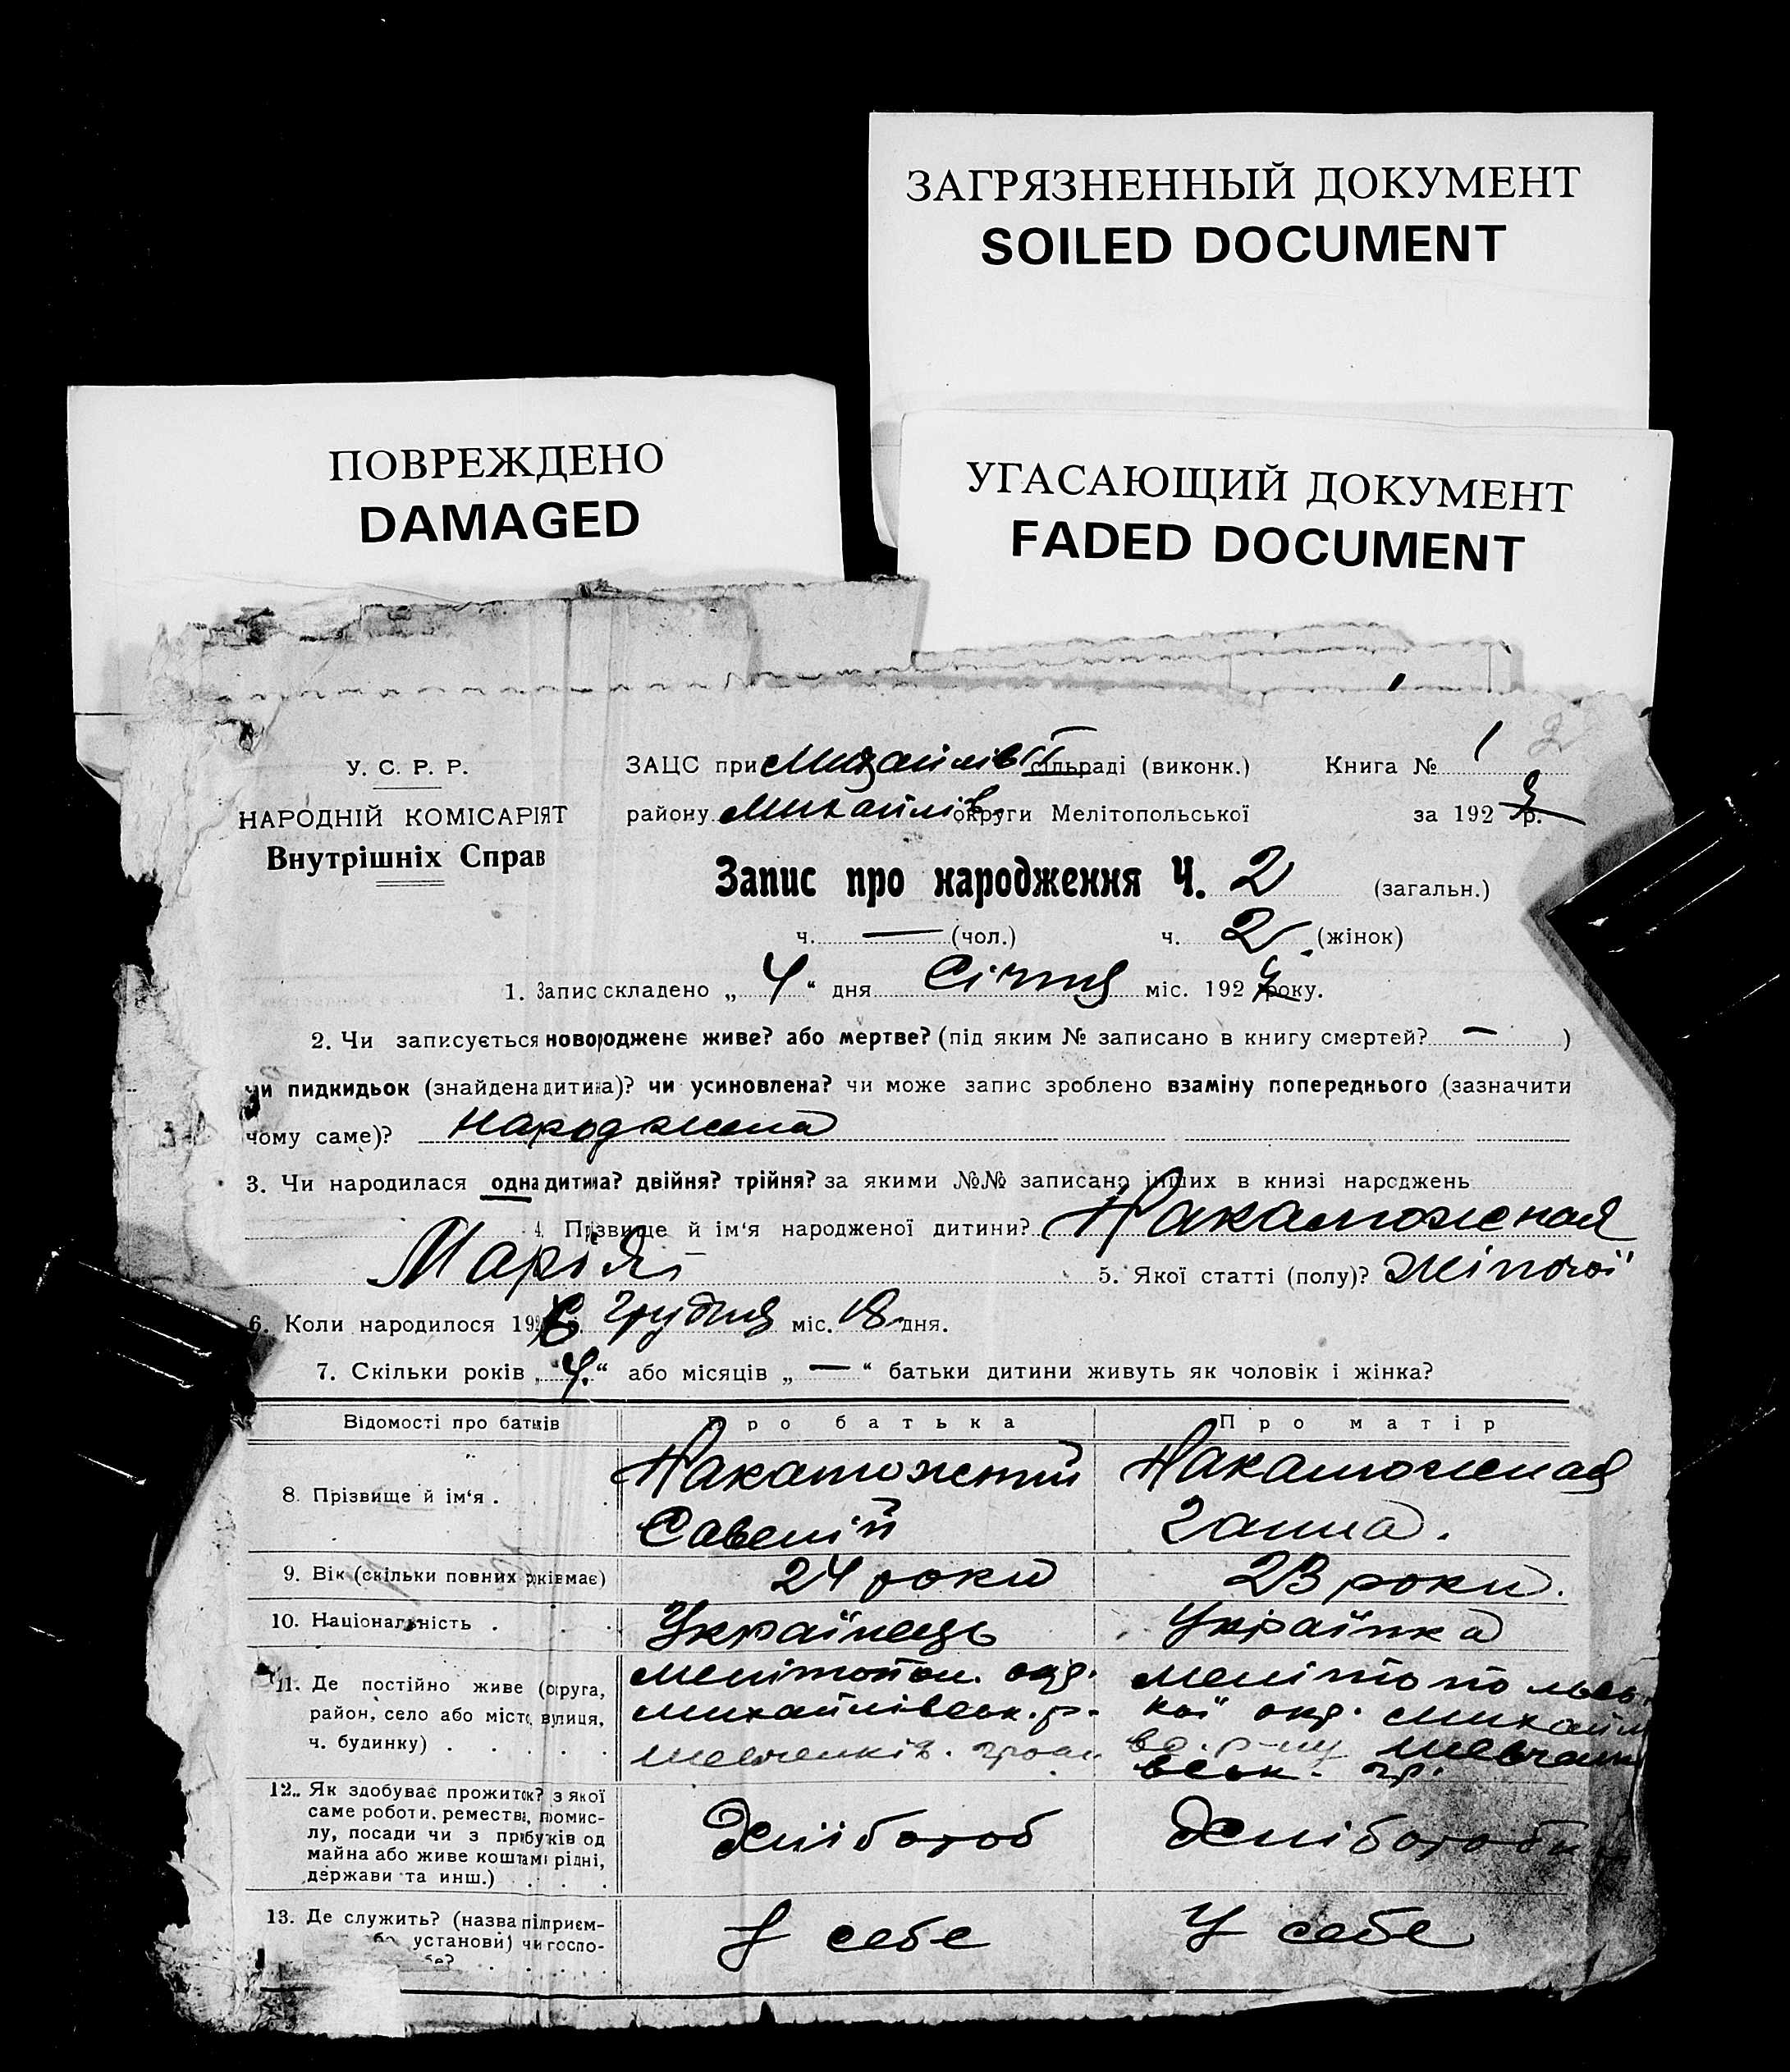 ЗАГРЯЗНЕННЫЙ ДОКУМЕНТ
SOILED DOCUMENT
ПОВРЕЖДЕНО
DAMAGED
УГАСАЮЩИЙ ДОКУМЕНТ
FADED DOCUMENT
У. С. Р. Р.
НАРОДНІЙ КОМІСАРІЯТ
Внутрішніх Справ
ЗАЦС при Михайлів сільраді (виконк.) Книга № 1
району Михайлів округи Мелітопольської за 192 р.
Запис про народження Ч. 2 (загальн.)
ч. — (чол.) ч. 2 (жінок)
1. Запис складено „ 4 “ дня Січня міс. 192 року.
2. Чи записується новороджене живе? або мертве? (під яким № записано в книгу смертей? — )
чи пидкидьок (знайдена дитина)? чи усиновлена? чи може запис зроблено взаміну попереднього (зазначити
чому саме)? народжена
3. Чи народилася одна дитина? двійня? трійня? за якими №№ записано інших в книзі народжень
4. Прізвище й ім'я народженої дитини? Накатожная
Марія 5. Якої статті (полу)? Жіночої
6. Коли народилося 192 6 Грудня міс. 18 дня.
7. Скільки років „ 4. “ або місяців „ — “ батьки дитини живуть як чоловік і жінка?
Відомості про батьків Про батька Про матір
8. Прізвище й ім'я . Накатожний Накатожная
Савелій Ганна.
9. Вік (скільки повних років має) 24 роки 23 роки.
10. Національність . Українець Українка
11. Де постійно живе (округа, Мелітопол. окр. Мелітополь
район, село або місто, вулиця, Михайлівськ. р. кої окр. Михайл
ч. будинку) . Шевченків. гром. во. р-ну Шевченк
вськ. гр.
12. Як здобуває прожиток? з якої
саме роботи, ремества, промис-
лу, посади чи з прибутків од Хлібороб Хлібороб
майна або живе коштам рідні,
держави та инш.)
13. Де служить? (назва підприєм-
установи) чи госпо- У себе У себе
бе?